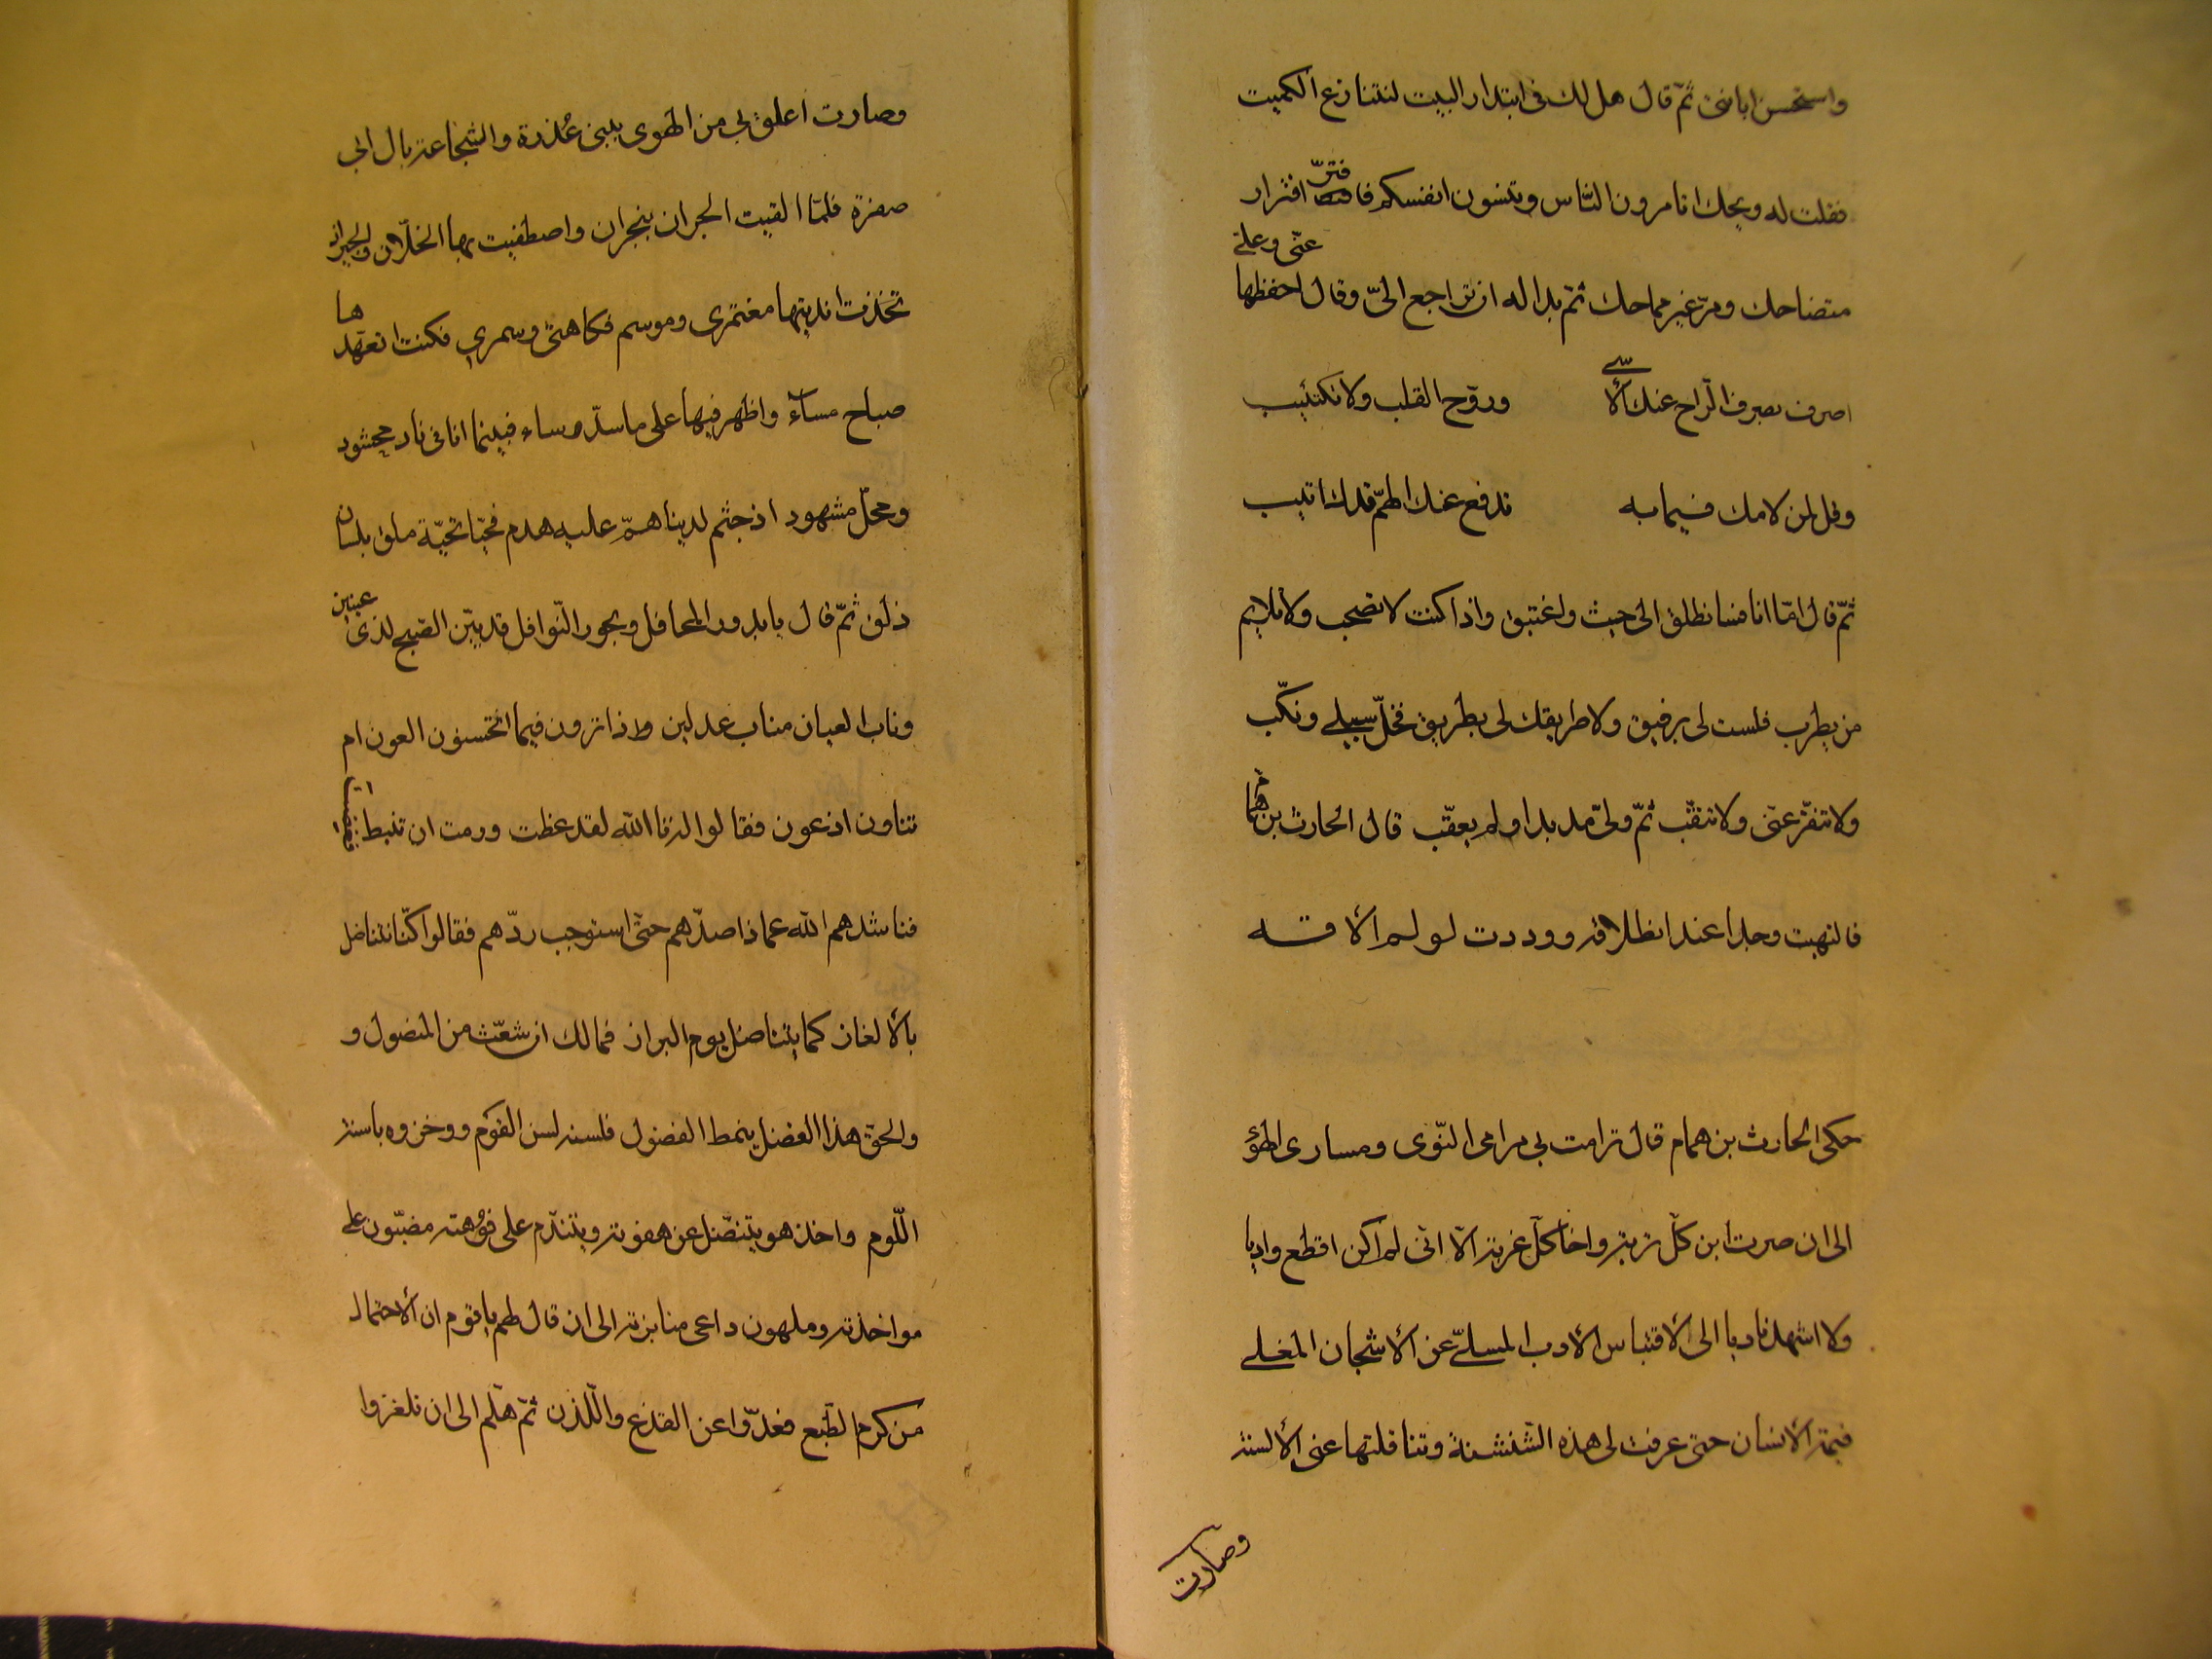 واستحسن ابانتى ثمّ قال هل لك فى ابتدار البيت لنتنازع الكميت
فقلت له ويحك اتامرون النّاس وتنسون انفسكم فافترّ افترار
متضاحك ومرّ غير مماحك ثمّ بدا له ان تراجع الىّ وقال احفظها عنّى وعلىّ
اصرف بصرف الرّاح عنك الأسى وروّح القلب ولا تكتئيب
وقل لمن لامك فيما به تدفع عنك الهمّ قدك اتيب
ثمّ قال امّا انا فسانطلق الى حيث واغتبق واذا كنت لا تصحب ولا تلايم
من يطرب فلست لى برفيق ولا طريقك لى بطريق فخلّ سبيلى ونكّب
ولا تنقّر عنّى ولا تنقّب ثمّ ولّى مدبدا ولم يعقّب قال الحارث بن همّام
فالتهبت وجدا عند انطلاقه ووددت لو لم الاقه
حكى الحارث بن همام قال ترامت بى مرامى النّوى ومسارى الهوى
الى ان صرت ابن كلّ تربة واخا كلّ غربة الّا انّى لم اكن اقطع واديا
ولا اشهد ناديا الى الأقتباس الأدب المسلّى عن الأشجان المغلى
قيمة الأنسان حتّى عرفت لى هذه الشّنشنة وتناقلتها عنى الألسنة
وصارت
وصارت اعلق بى من الهوى ببنى عُذرة والشّجاعة بال ابى
صفرة فلمّا القيت الجران بنجران واصطفيت بها الخلّان والجيران
تخّذت انديتها مغتمرى وموسم فكاهتى وسمرى فكنت اتعهّدها
صباح مسآء واظهر فيها على ما سرّ وساء فبينما انا فى ناد محشود
ومحلّ مشهود اذ جثم لدينا همّ عليه هدم فحيّا تحيّة ملق بلسان
ذلق ثمّ قال يا بدور المحافل وبحور النّوافل قد بيّن الصّبح لذى عينين
وناب العيان مناب عدلين وذا ترون فيما اتحسنون العون ام
تناون اذ عون فقالوا لرنا اللّه لقد عظت ورمت ان تنبط فغضت
فناشدهم اللّه عما ذا صدّهم حتّى استوجب ردّهم فقالوا كنّا نتناضل
بالألغاز كما يتناضل يوم البراز فما لك ان شعّث من المنضول و
والحق هذا الفضل بنمط الفضول فلسنه لسن القوم ووخزوه باسنة
اللّوم واخذ هو يتنصّل عن هفوته ويتندّم على فوهته مضبّون على
مواخذته وملهون داعى منابزته الى ان قال لهم يا قوم ان الأحتمال
من كرم الطّبع فعدّوا عن القذع واللّذن ثمّ هلّم الى ان نلغزوا